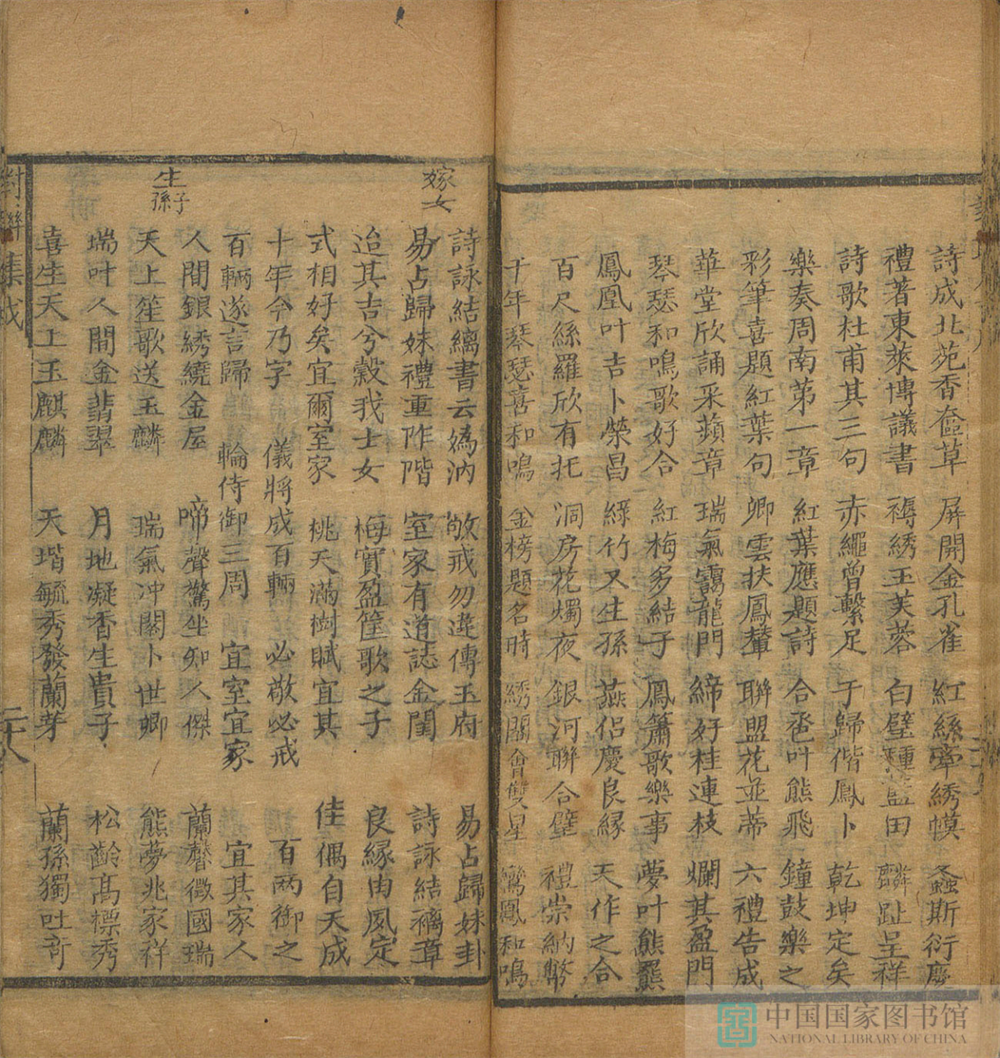 詩成北苑香奩草 屏開金孔雀 紅絲牽綉幙 螽斯衍慶
禮著東萊博議書 褥綉玉芙蓉 白璧種藍田 麟趾呈祥
詩歌杜甫其三句 赤繩曾繫足 于歸偕鳳卜 乾坤定矣
樂奏周南第一章 紅葉應題詩 合巹叶熊飛 鐘鼓樂之
彩筆喜題紅葉句 卿雲扶鳳輦 聯盟花並蒂 六禮告成
華堂欣誦采蘋章 瑞氣靄龍門 締好桂連枝 爛其盈門
琴瑟和鳴歌好合 紅梅多結子 鳳簫歌樂事 夢叶熊羆
鳳凰叶吉卜榮昌 綠竹又生孫 燕侶慶良緣 天作之合
百尺絲羅欣有托 洞房花燭夜 銀河聯合璧 禮崇納幣
千年琴瑟喜和鳴 金榜題名時 綉閣會雙星 鸞鳳和鳴
嫁女
詩詠結縭書云嬀汭 敬戒勿違傳玉府 易占歸妹卦
易占歸妹禮重阼階 室家有道誌金閨 詩詠結褵章
迨其吉兮穀我士女 梅實盈筐歌之子 良緣由夙定
式相好矣宜爾室家 桃夭滿樹賦宜其 佳偶自天成
十年今乃字 儀將成百輛 必敬必戒 百兩御之
百輛遂言歸 輪侍御三周 宜室宜家 宜其家人
生子孫
人間銀綉繞金屋 啼聲驚坐知人傑 蘭馨徵國瑞
天上笙歌送玉麟 瑞氣冲閣卜世卿 熊夢兆家祥
瑞叶人間金翡翠 月地凝香生貴子 松齡高標秀
喜生天上玉麒麟 天堦毓秀發蘭芽 蘭孫獨吐奇
對聯集成
二十八
中国国家图书馆
NATIONAL LIBRARY OF CHINA